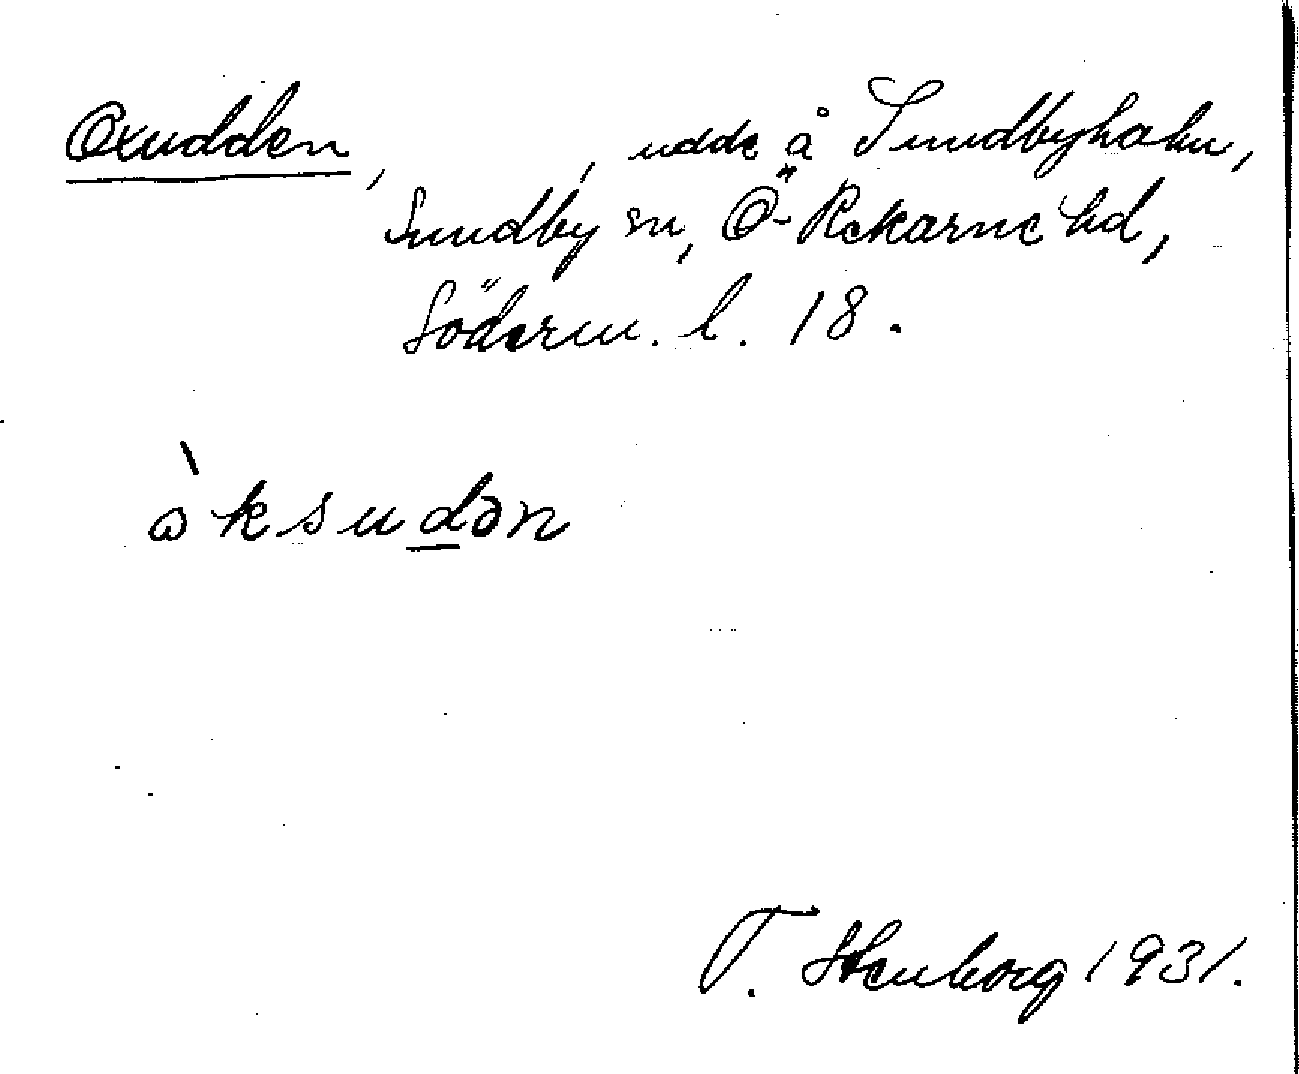 Oxudden, , udde å Sundbyholm,
Sundby sn, Ö-Rekarne hd,
Söderm. l. 18.
òksudən
T. Stenborg 1931.